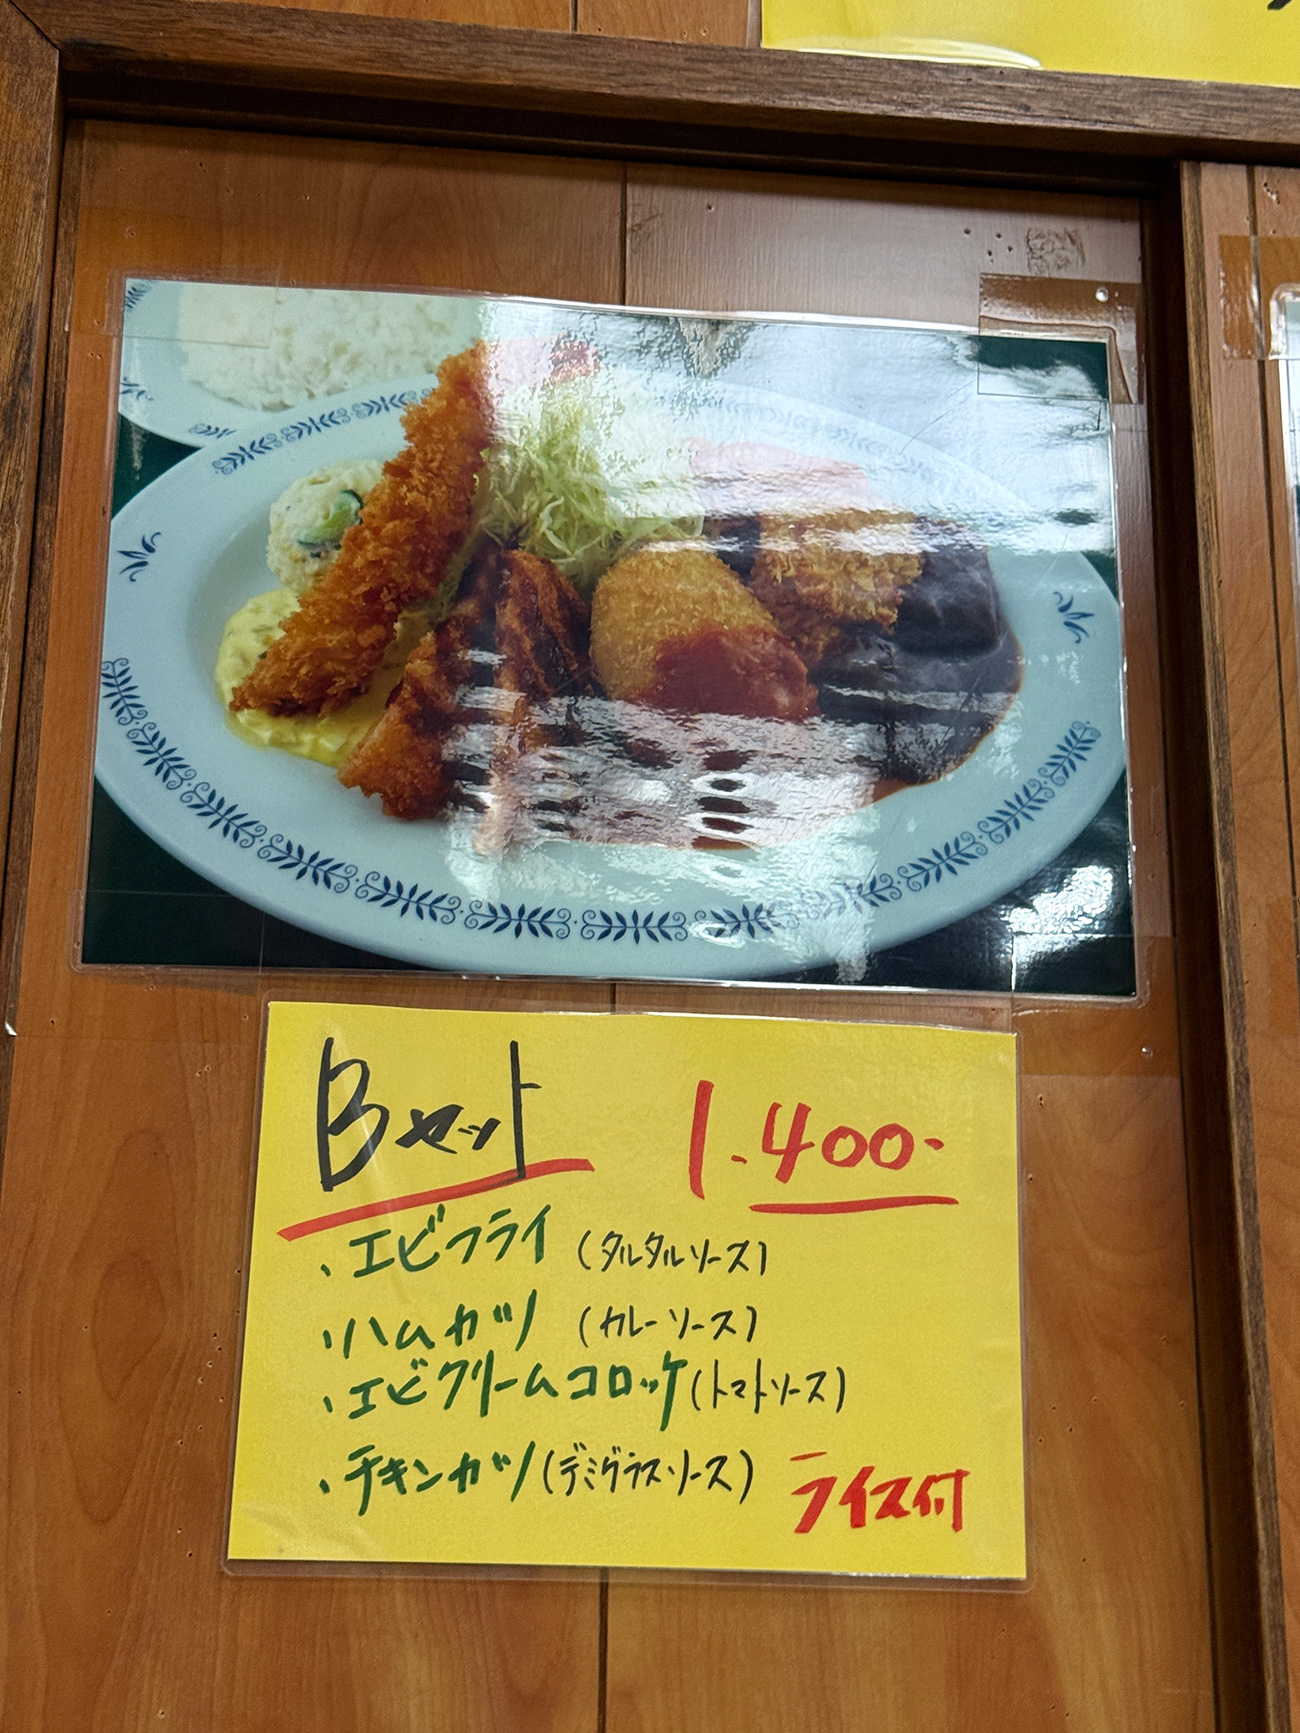 Bセット 1.400-
・エビフライ (タルタルソース)
・ハムカツ (カレーソース)
・エビクリームコロッケ (トマトソース)
・チキンカツ (デミグラスソース)
ライス付